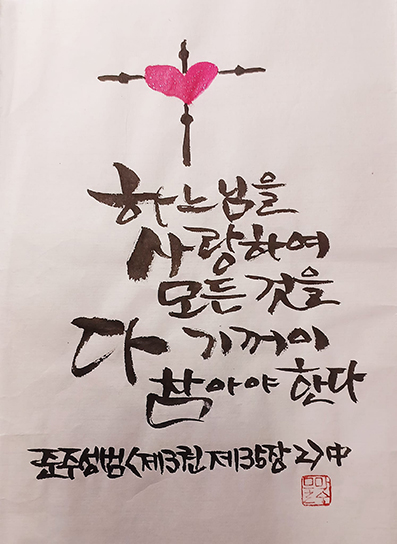 하느님을
사랑하여
모든 것을
다 기꺼이
참아야 한다
준주성범<제3권 제35장 2>中